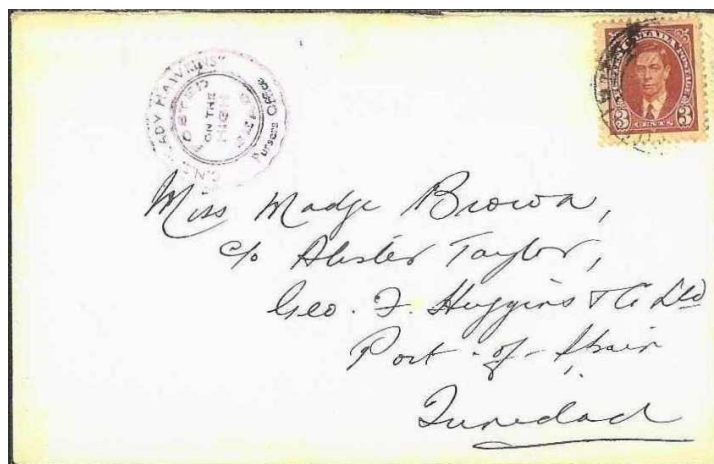 LADY HAWKINS"
POSTED
ON THE
HIGH
PURSERS OFFICE
POSTES CANADA POSTAGE
3 CENTS 3
Miss Madge Brown,
c/o Alister Taylor,
Geo. F. Huggins & Co Ltd
Port-of-Spain
Trinidad